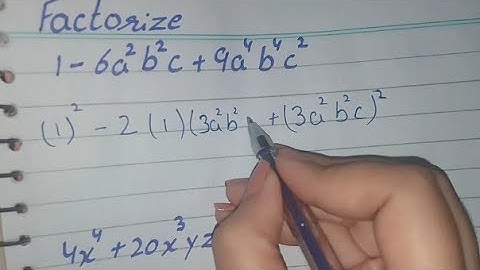 Factorize
1 - 6a²b²c + 9a⁴b⁴c²
(1)² - 2 (1) (3a²b² + (3a²b²c)²
4x⁴ + 20x³yz